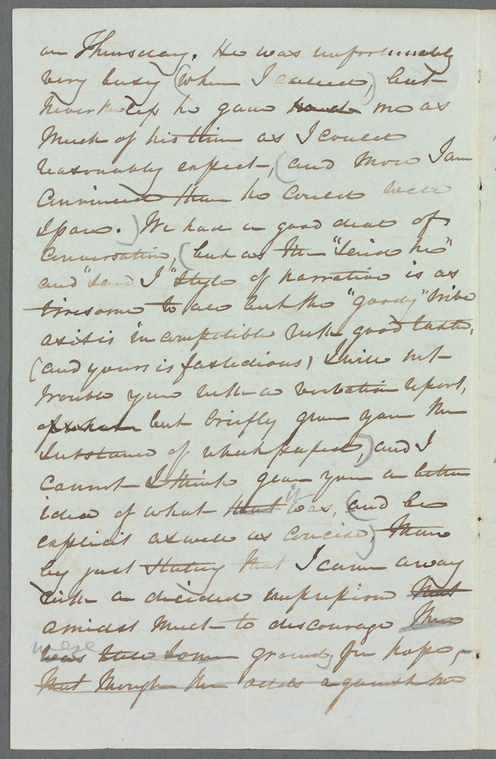 on Thursday. He was unfortunately
very busy (when I called,) but
nevertheless he gave me as
much of his time as I could
reasonably expect, (and more I am
convinced than he could well
spare.) We had a good deal of
conversation, (but as the "said he"
and "said I" style of narrative is as
tiresome to all but the "goody" tribe
as it is incompatible with good taste,
(and yours is fastidious) I will not
trouble you with a verbatim report,
of whom but briefly give you the
substance of what passed,) and I
cannot I think give you a better
idea of what that it was, (and be
explicit as well as concise) than
by just stating that I came away
with a decided impression that
amidst much to discourage there
were was still some grounds for hope,
that though the odds against me